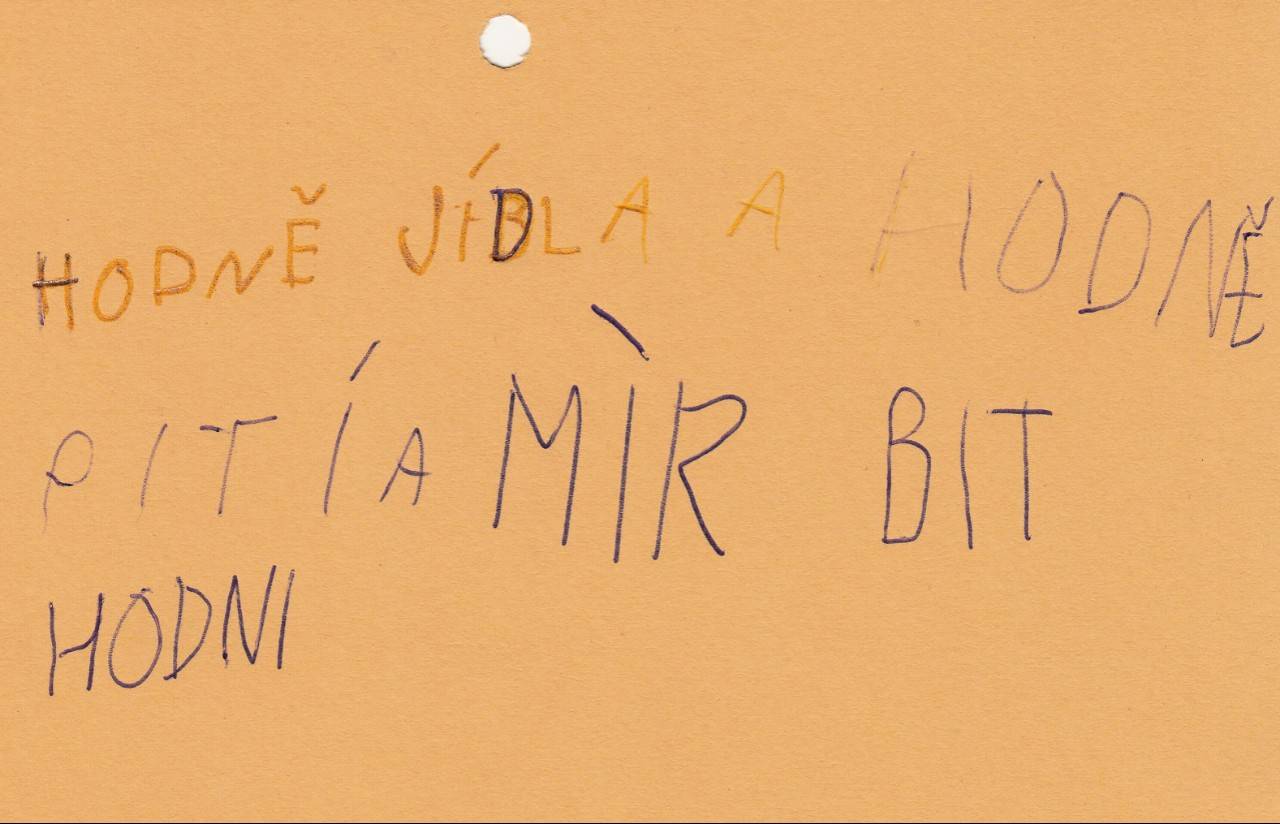 HODNĚ JÍDLA A HODNĚ
PITÍ A MÌR BIT
HODNI